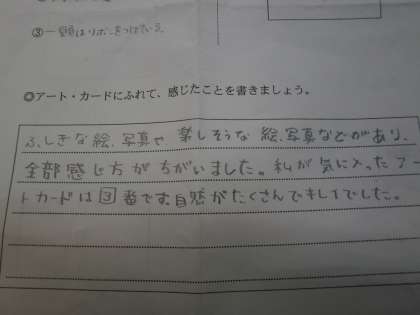 ③一頭はリボンをつけている。
◎アート・カードにふれて、感じたことを書きましょう。
ふしぎな絵、写真や 楽しそうな 絵、写真などがあり、
全部感じ方が ちがいました。私が 気に入った アー
トカードは 3 番です自然がたくさんできれいでした。